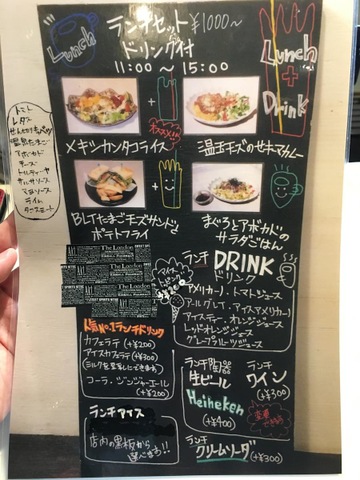 Lunch
ランチセット ¥1000~
ドリンク付
11:00 ~ 15:00
Lunch
+
Drink
トマト
レタス
アボカド
チーズ
トルティーヤ
サルサソース
ライム
オススメ!!
メキシカンタコライス
温玉チーズのせキーマカレー
BLTたまごチーズサンドと
ポテトフライ
まぐろとアボカドの
サラダごはん
The London
ランチ
DRINK
ドリンク
アメリカーノ・トマトジュース
アールグレイ・アイスアメリカーノ
アイスティー・オレンジジュース
レッドオレンジジュース
グレープフルーツジュース
人気No.1ランチドリンク
カフェラテ (+¥200)
アイスカフェラテ (+¥300)
(ミルクを豆乳にできます)
コーラ・ジンジャーエール
(+¥200)
ランチ限定
生ビール
Heineken
+¥400
ランチ
ワイン
+¥300
ランチアイス
店内の黒板から
選べます!
ランチ
クリームソーダ
(+¥300)